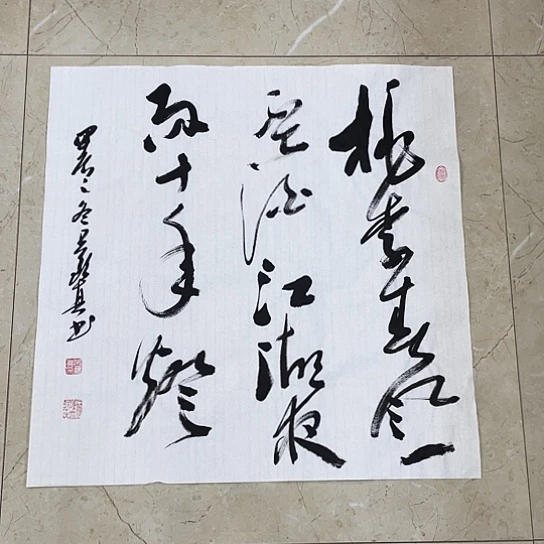 桃李春风一
杯酒江湖夜
雨十年灯
冬 书